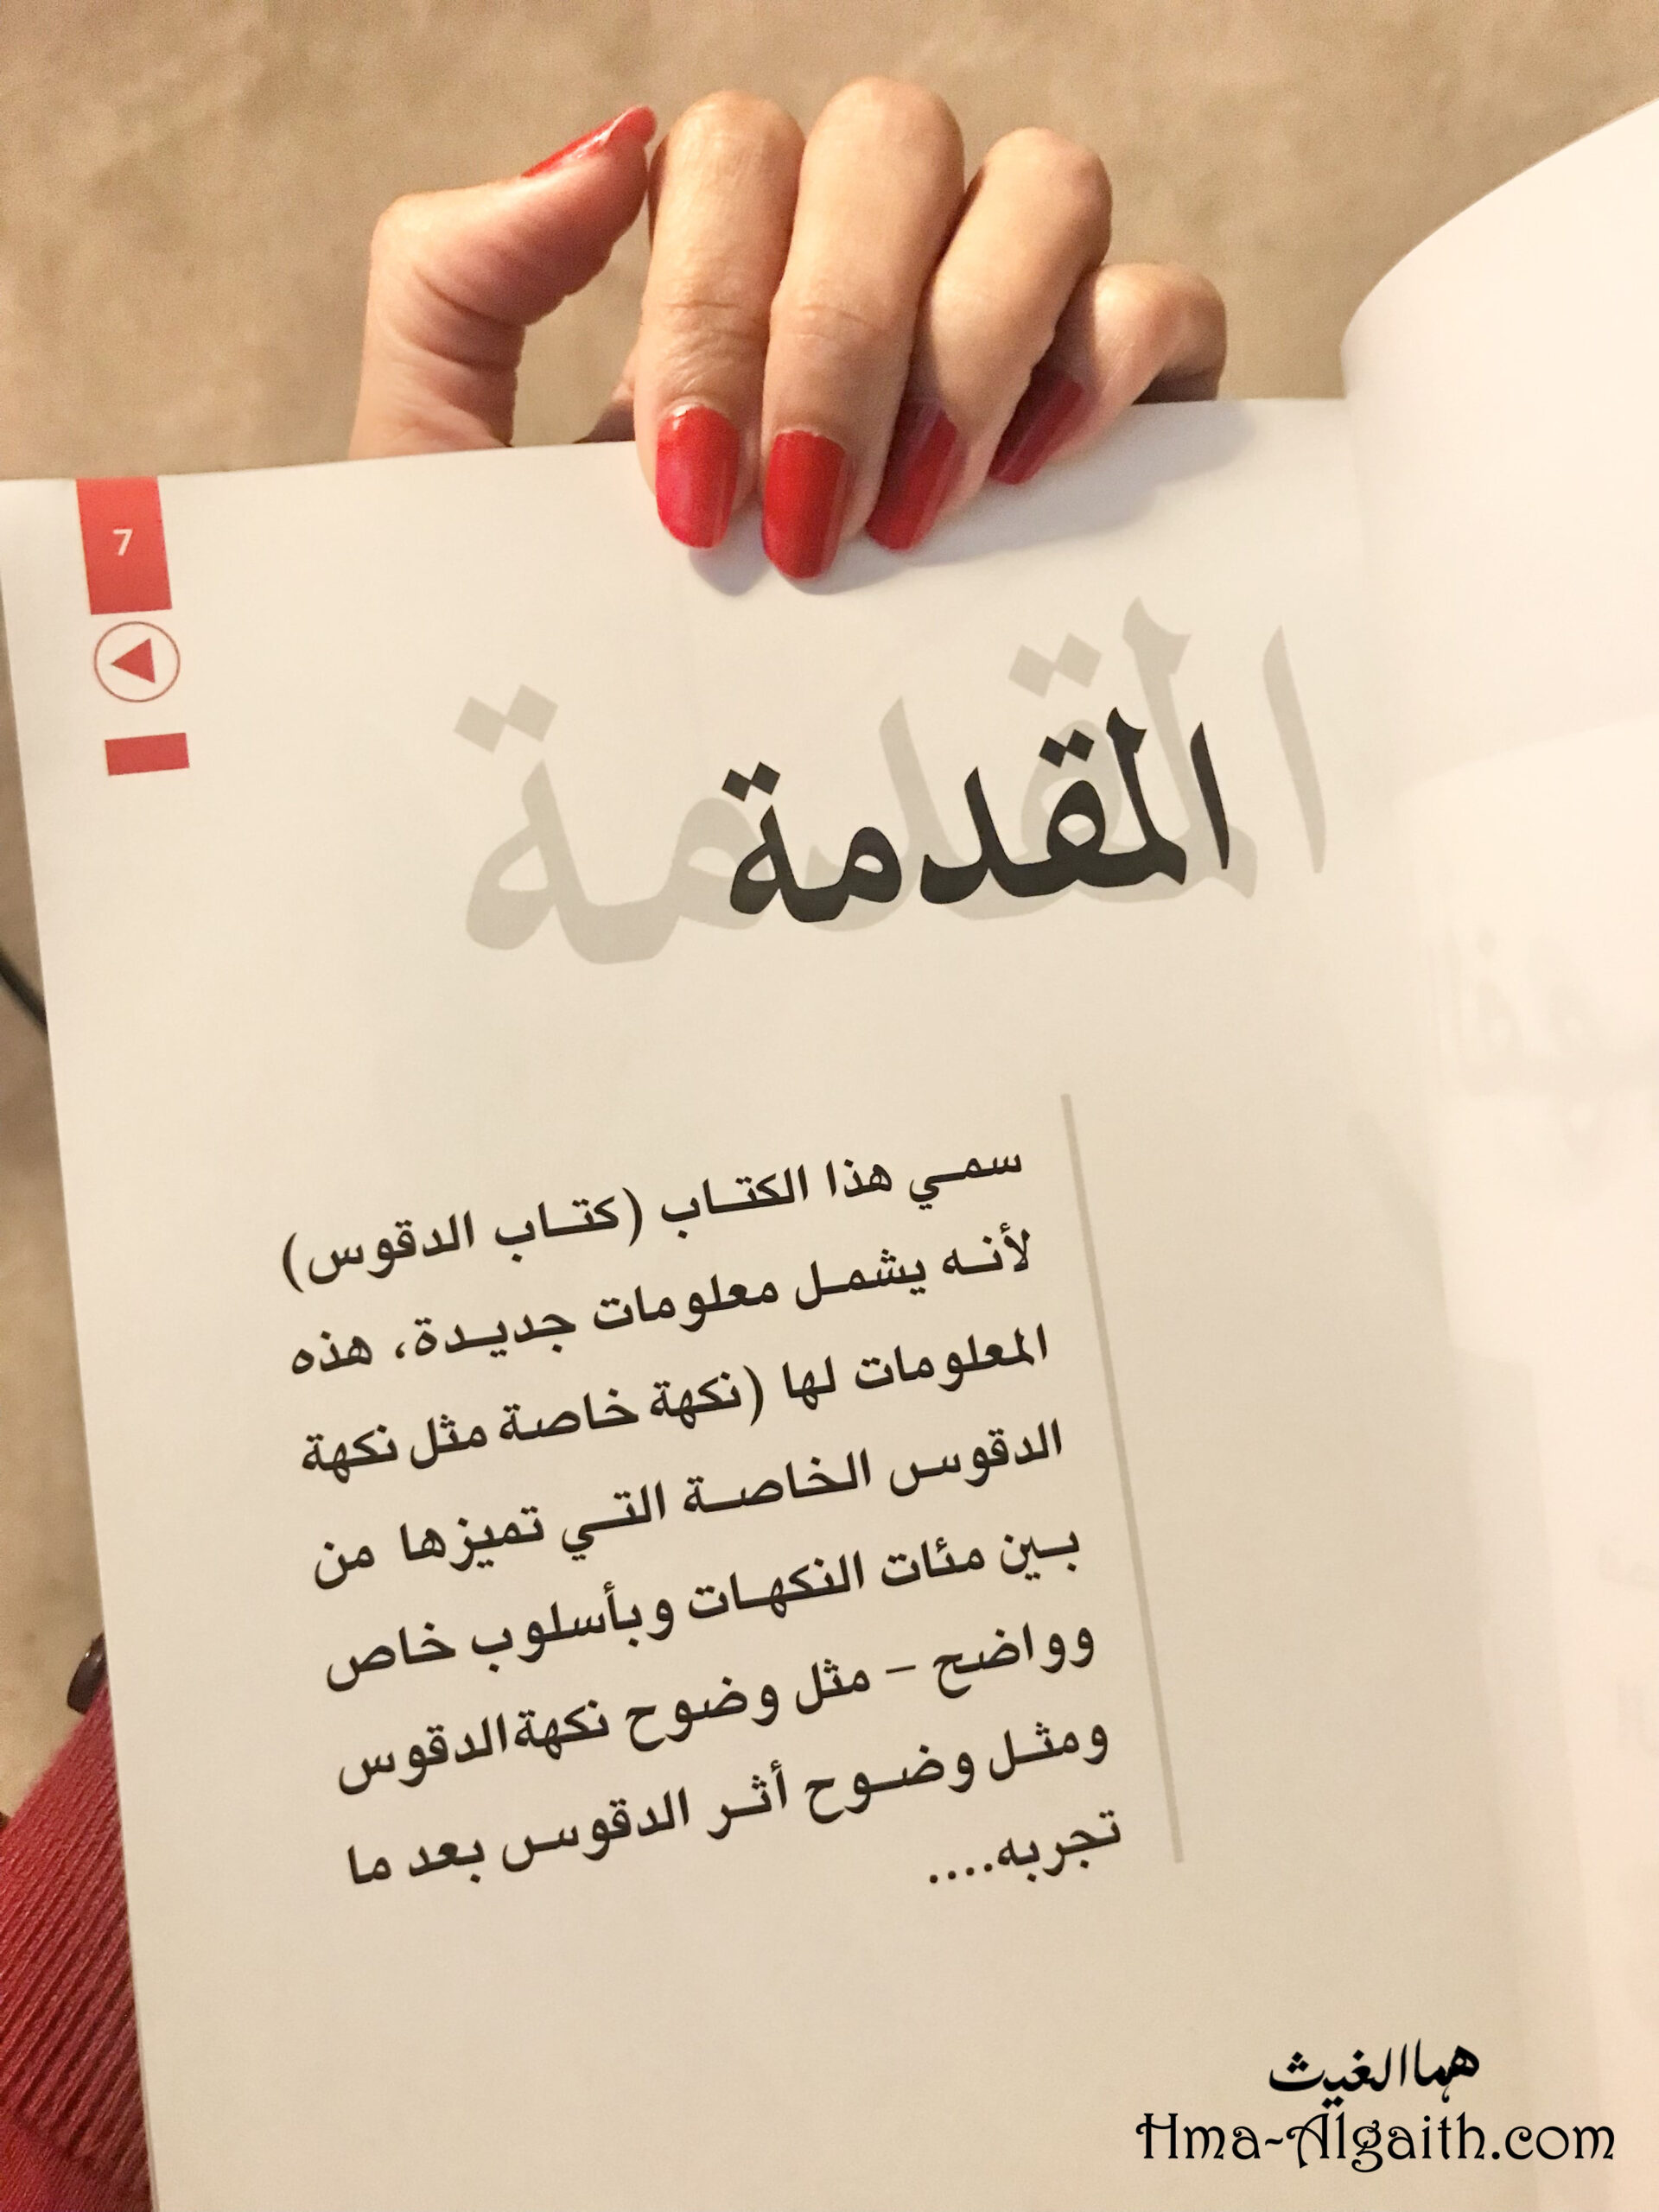 7
المقدمة
سمي هذا الكتاب (كتاب الدقوس)
لأنه يشمل معلومات جديدة، هذه
المعلومات لها (نكهة خاصة مثل نكهة
الدقوس الخاصة التي تميزها من
بين مئات النكهات وبأسلوب خاص
وواضح – مثل وضوح نكهة الدقوس
ومثل وضوح أثر الدقوس بعد ما
تجربه....
هما الغيث
Hma-Algaith.com